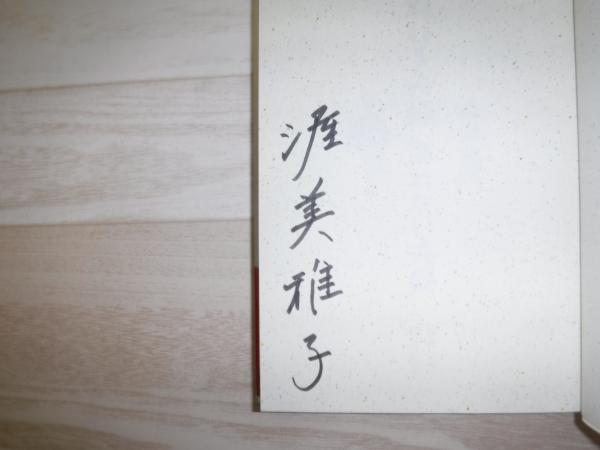 渥美雅子